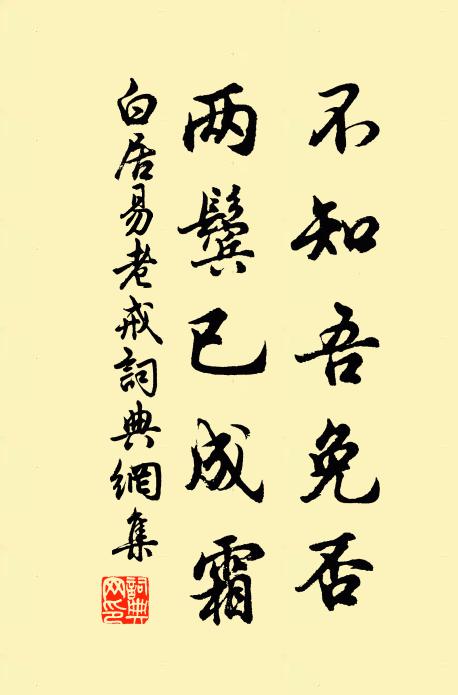 不知吾免否
两鬓已成霜
白居易老戒詞典網集
詞典网印